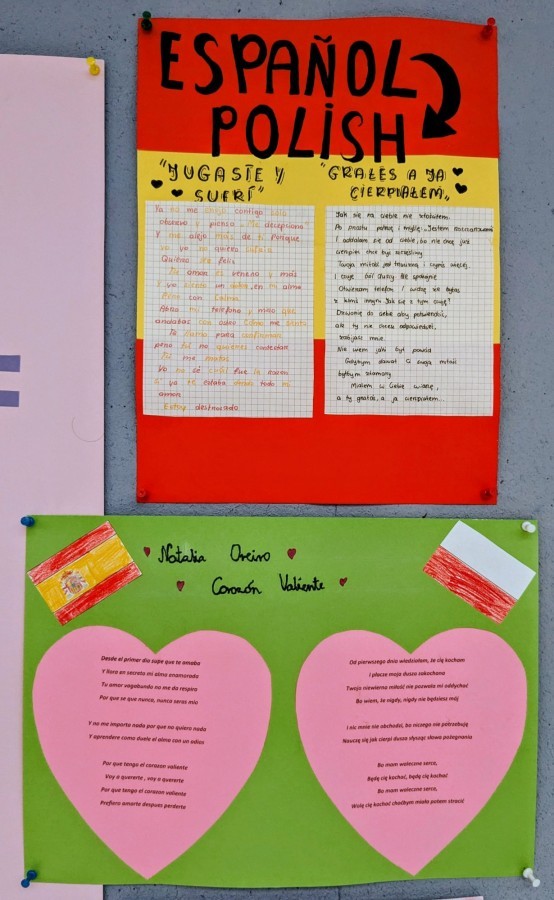 ESPAÑOL
POLISH
"JUGASTE Y
SUFRÍ"
"GRAŁEŚ A JA
CIERPIAŁEM"
Ya no me enojo contigo, solo
observo y pienso: Me decepciona
Y me alejo más de ti porque
no ya no quiero
Quiero
amor es veneno y más
Y yo siento un dolor en mi alma
con
Abro mi teléfono y miro que
andabas con otro Cómo me
Te llamo para confirmar
pero tú no quieres contestar
me matas
Yo no sé cuál fue la razón
Si yo te estaba dando todo mi
amor
Estoy destrozado
Już się na ciebie nie złościłem.
Po prostu patrzę i myślę: Jestem rozczarowany
I oddalam się od ciebie, bo nie chcę już
cierpieć chcę być szczęśliwy
Twoja miłość jest trucizną i czymś więcej.
I czuję ból duszy
Otwieram telefon i widzę że byłaś
z kimś innym Jak się z tym czuję?
Dzwonię do ciebie aby potwierdzić,
ale ty nie chcesz odpowiedzieć.
zabijasz mnie.
Nie wiem jaki był powód
Gdybym dawał Ci swoją miłość
byłbym złamany
Miałem w Ciebie wiarę,
a ty grałaś, a ja cierpiałem...
Natalia Oreiro
Corazón Valiente
Desde el primer día supe que te amaba
Y llora en secreto mi alma enamorada
Tu amor vagabundo no me da respiro
Por que se que nunca, nunca seras mio
Y no me importa nada por que no quiero nada
Y aprendere como duele el alma con un adios
Por que tengo el corazon valiente
Voy a quererte , voy a quererte
Por que tengo el corazon valiente
Prefiero amarte despues perderte
Od pierwszego dnia wiedziałam, że cię kocham
I płacze moja dusza zakochana
Twoja niewierna miłość nie pozwala mi oddychać
Bo wiem, że nigdy, nigdy nie będziesz mój
I nic mnie nie obchodzi, bo niczego nie potrzebuję
Nauczę się jak cierpi dusza słysząc słowo pożegnania
Bo mam waleczne serce,
Będę cię kochać, będę cię kochać
Bo mam waleczne serce,
Wolę cię kochać choćbym miała potem stracić